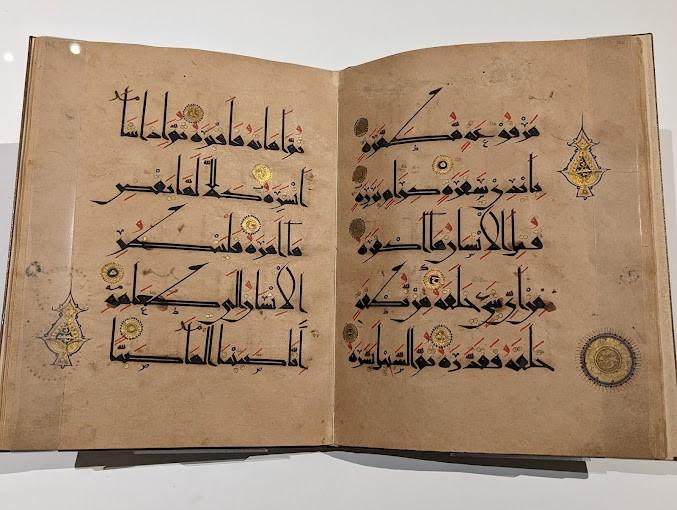 مَرْفُوعَةٍ مُطَهَّرَةٍ
بِأَيْدِي سَفَرَةٍ كِرَامٍ بَرَرَةٍ
قُتِلَ الْإِنْسَانُ مَا أَكْفَرَهُ
مِنْ أَيِّ شَيْءٍ خَلَقَهُ مِنْ نُطْفَةٍ
خَلَقَهُ فَقَدَّرَهُ ثُمَّ السَّبِيلَ يَسَّرَهُ
ثُمَّ أَمَاتَهُ فَأَقْبَرَهُ ثُمَّ إِذَا شَاءَ
أَنْشَرَهُ كَلَّا لَمَّا يَقْضِ
مَا أَمَرَهُ فَلْيَنْظُرِ
الْإِنْسَانُ إِلَى طَعَامِهِ
أَنَّا صَبَبْنَا الْمَاءَ صَبًّا